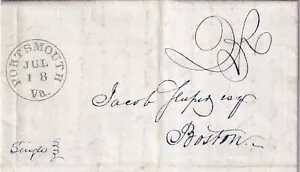 PORTSMOUTH
JUL
18
Va.
Jacob Esq.
Boston.
Single